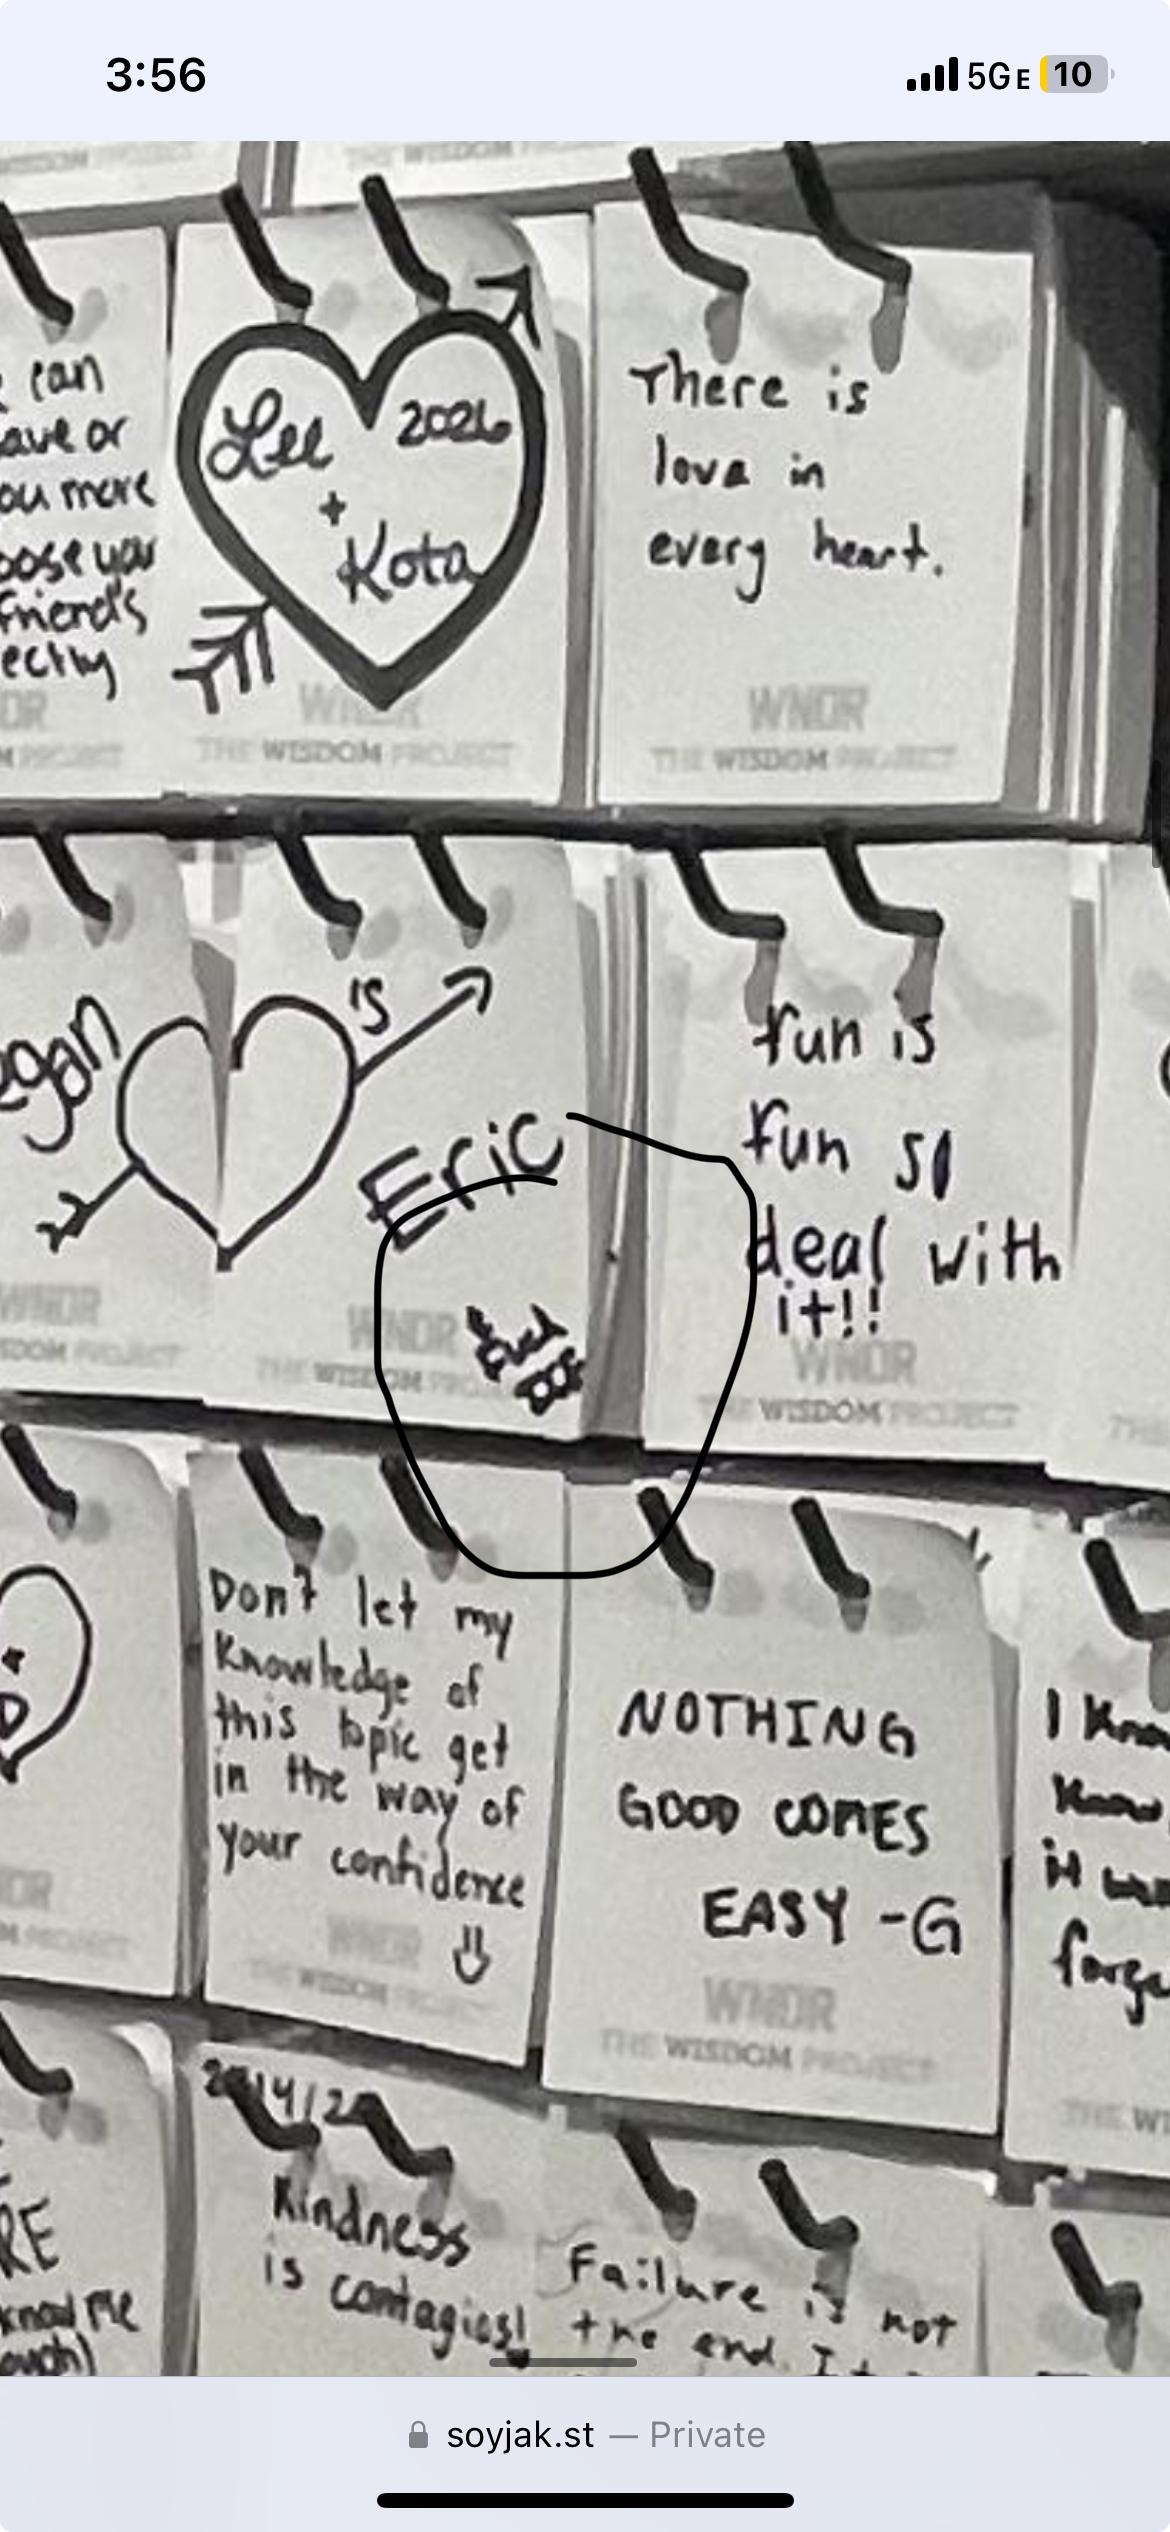 3:56
5GE 10
THE WISDOM
can
ave or
ou more
oose your
friend's
ectly
THE WISDOM PROJECT
Lee
2026
+
Kota
WNDR
THE WISDOM PROJECT
There is
love in
every heart.
WNDR
THE WISDOM PROJECT
egan
WNDR
PROJECT
is
Eric
WNDR
THE WISDOM PROJECT
fun is
fun so
deal with
it!!
WNDR
THE WISDOM PROJECT
Don't let my
knowledge of
this topic get
in the way of
your confidence
WNDR
THE WISDOM PROJECT
NOTHING
GOOD COMES
EASY -G
WNDR
THE WISDOM PROJECT
I
forge
THE WI
RE
know me
Kindness
is contagios!
Failure is not
the end. I
soyjak.st — Private